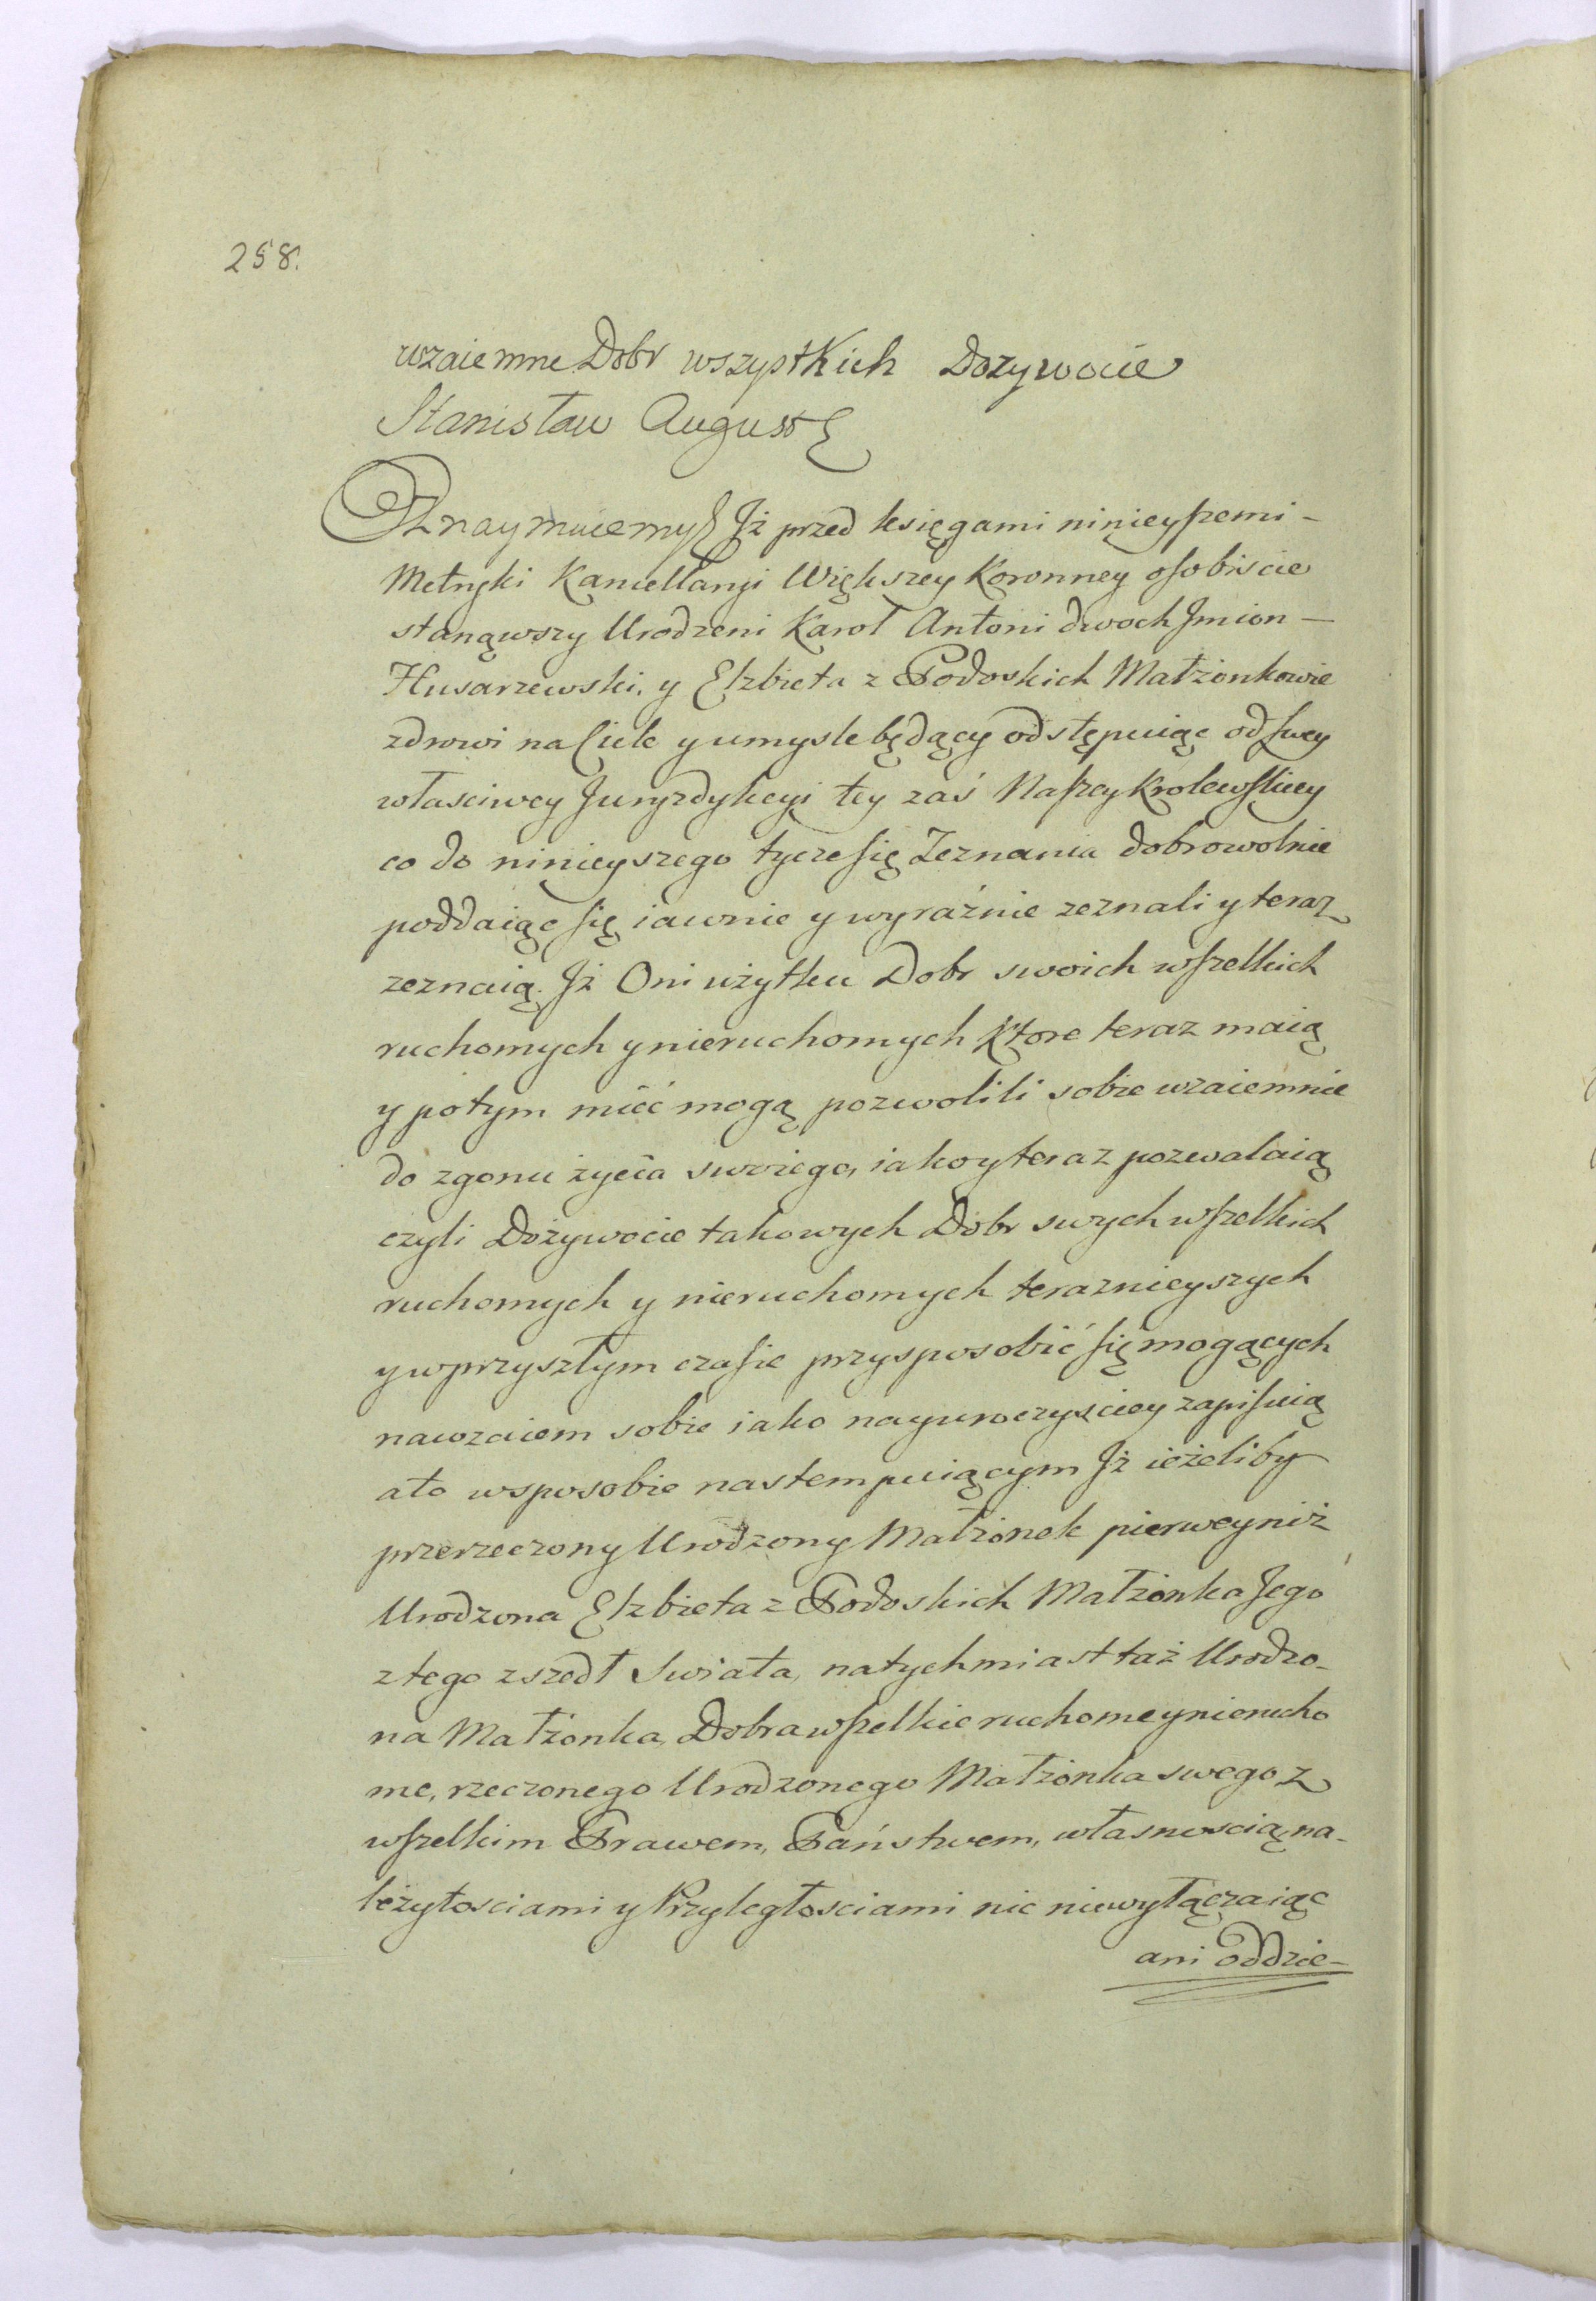 258.
wzaiemne Dobr wszystkich Dozywocie
Stanisław August
Oznaymuiemy Jż przed księgami ninieyszemi -
Metryki Kancellaryi Większey Koronney osobiscie
stanąwszy Urodzeni Karol Antoni dwoch Jmion -
Husarzewski, y Elzbieta z Podoskich Małżonkowie
zdrowi na Ciele y umysle będący odstępuiąc od swey
własciwey Juryzdykcyi tey zaś Naszey Krolewskiey
co do ninieyszego tycze się Zeznania dobrowolnie
poddaiąc się iawnie y wyraźnie zeznali y teraz
zeznaią. Jż Oni użytku Dobr swoich wszelkich
ruchomych y nieruchomych ktore teraz maią
y potym mieć mogą pozwolili sobie wzaiemnie
do zgonu życia swoiego, iako y teraz pozwalaią
czyli Dożywocie takowych Dobr swych wszelkich
ruchomych y nieruchomych teraznieyszych
y w przyszłym czasie przysposobić się mogących
nawzaiem sobie iako nayuroczysciey zapisuią
a to w sposobie nastempuiącym Jż ieżeliby
przerzeczony Urodzony Małżonek pierwey niż
Urodzona Elzbieta z Podoskich Małżonka Jego
z tego zszedł Swiata, natychmiast taż Urodzo-
na Małżonka, Dobra wszelkie ruchome y nierucho
me, rzeczonego Urodzonego Małżonka swego z
wszelkim Prawem, Państwem, własnoscią, na-
leżytosciami y Przyległosciami nic niewyłączaiąc
ani oddzie-